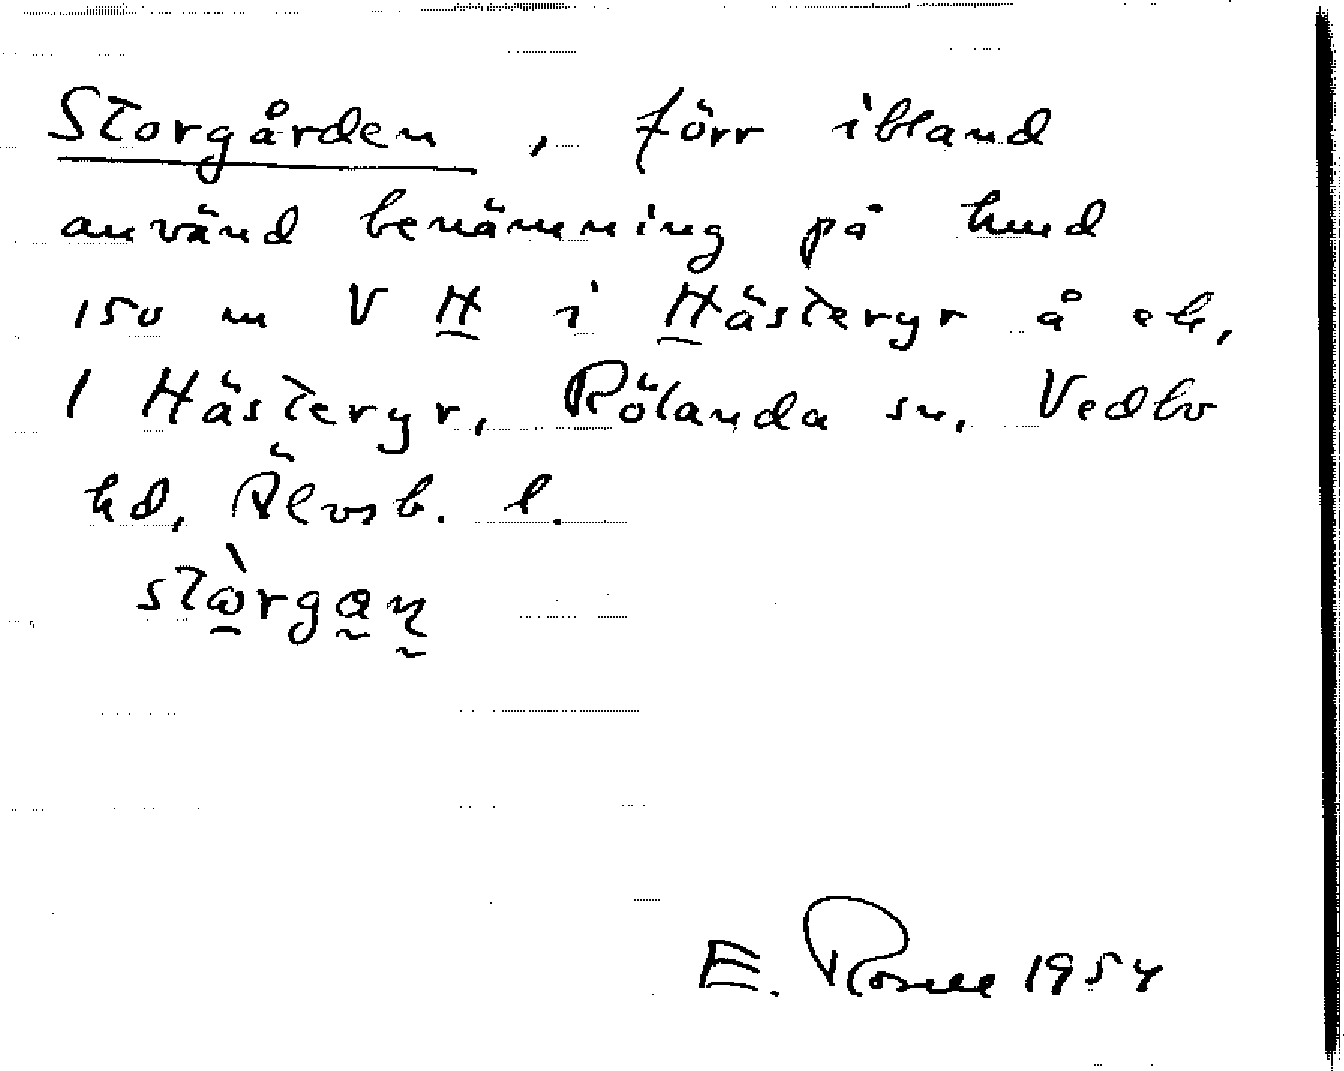 Storgården, förr ibland
använd benämning på hmd
150 m V H i Hästeryr å ek.
1 Hästeryr, Rölanda sn, Vedbo
hd, Älvsb. l.
E. 1954